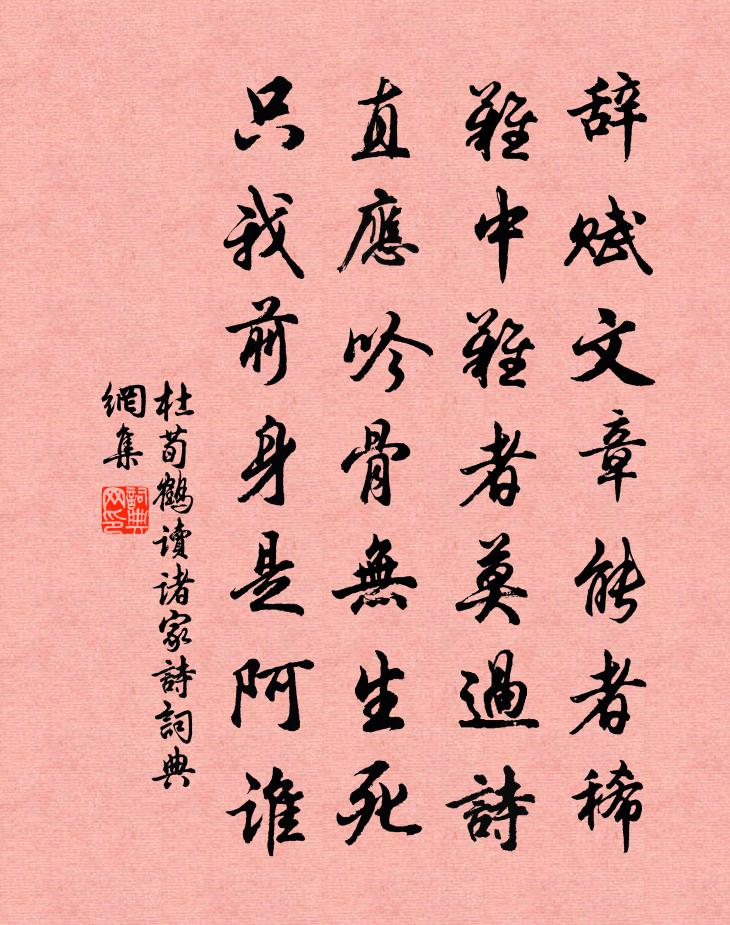 辞赋文章能者稀
難中難者莫過詩
直應吟骨無生死
只我前身是阿谁
杜荀鶴讀诸家詩詞典
網集
詞典
网印